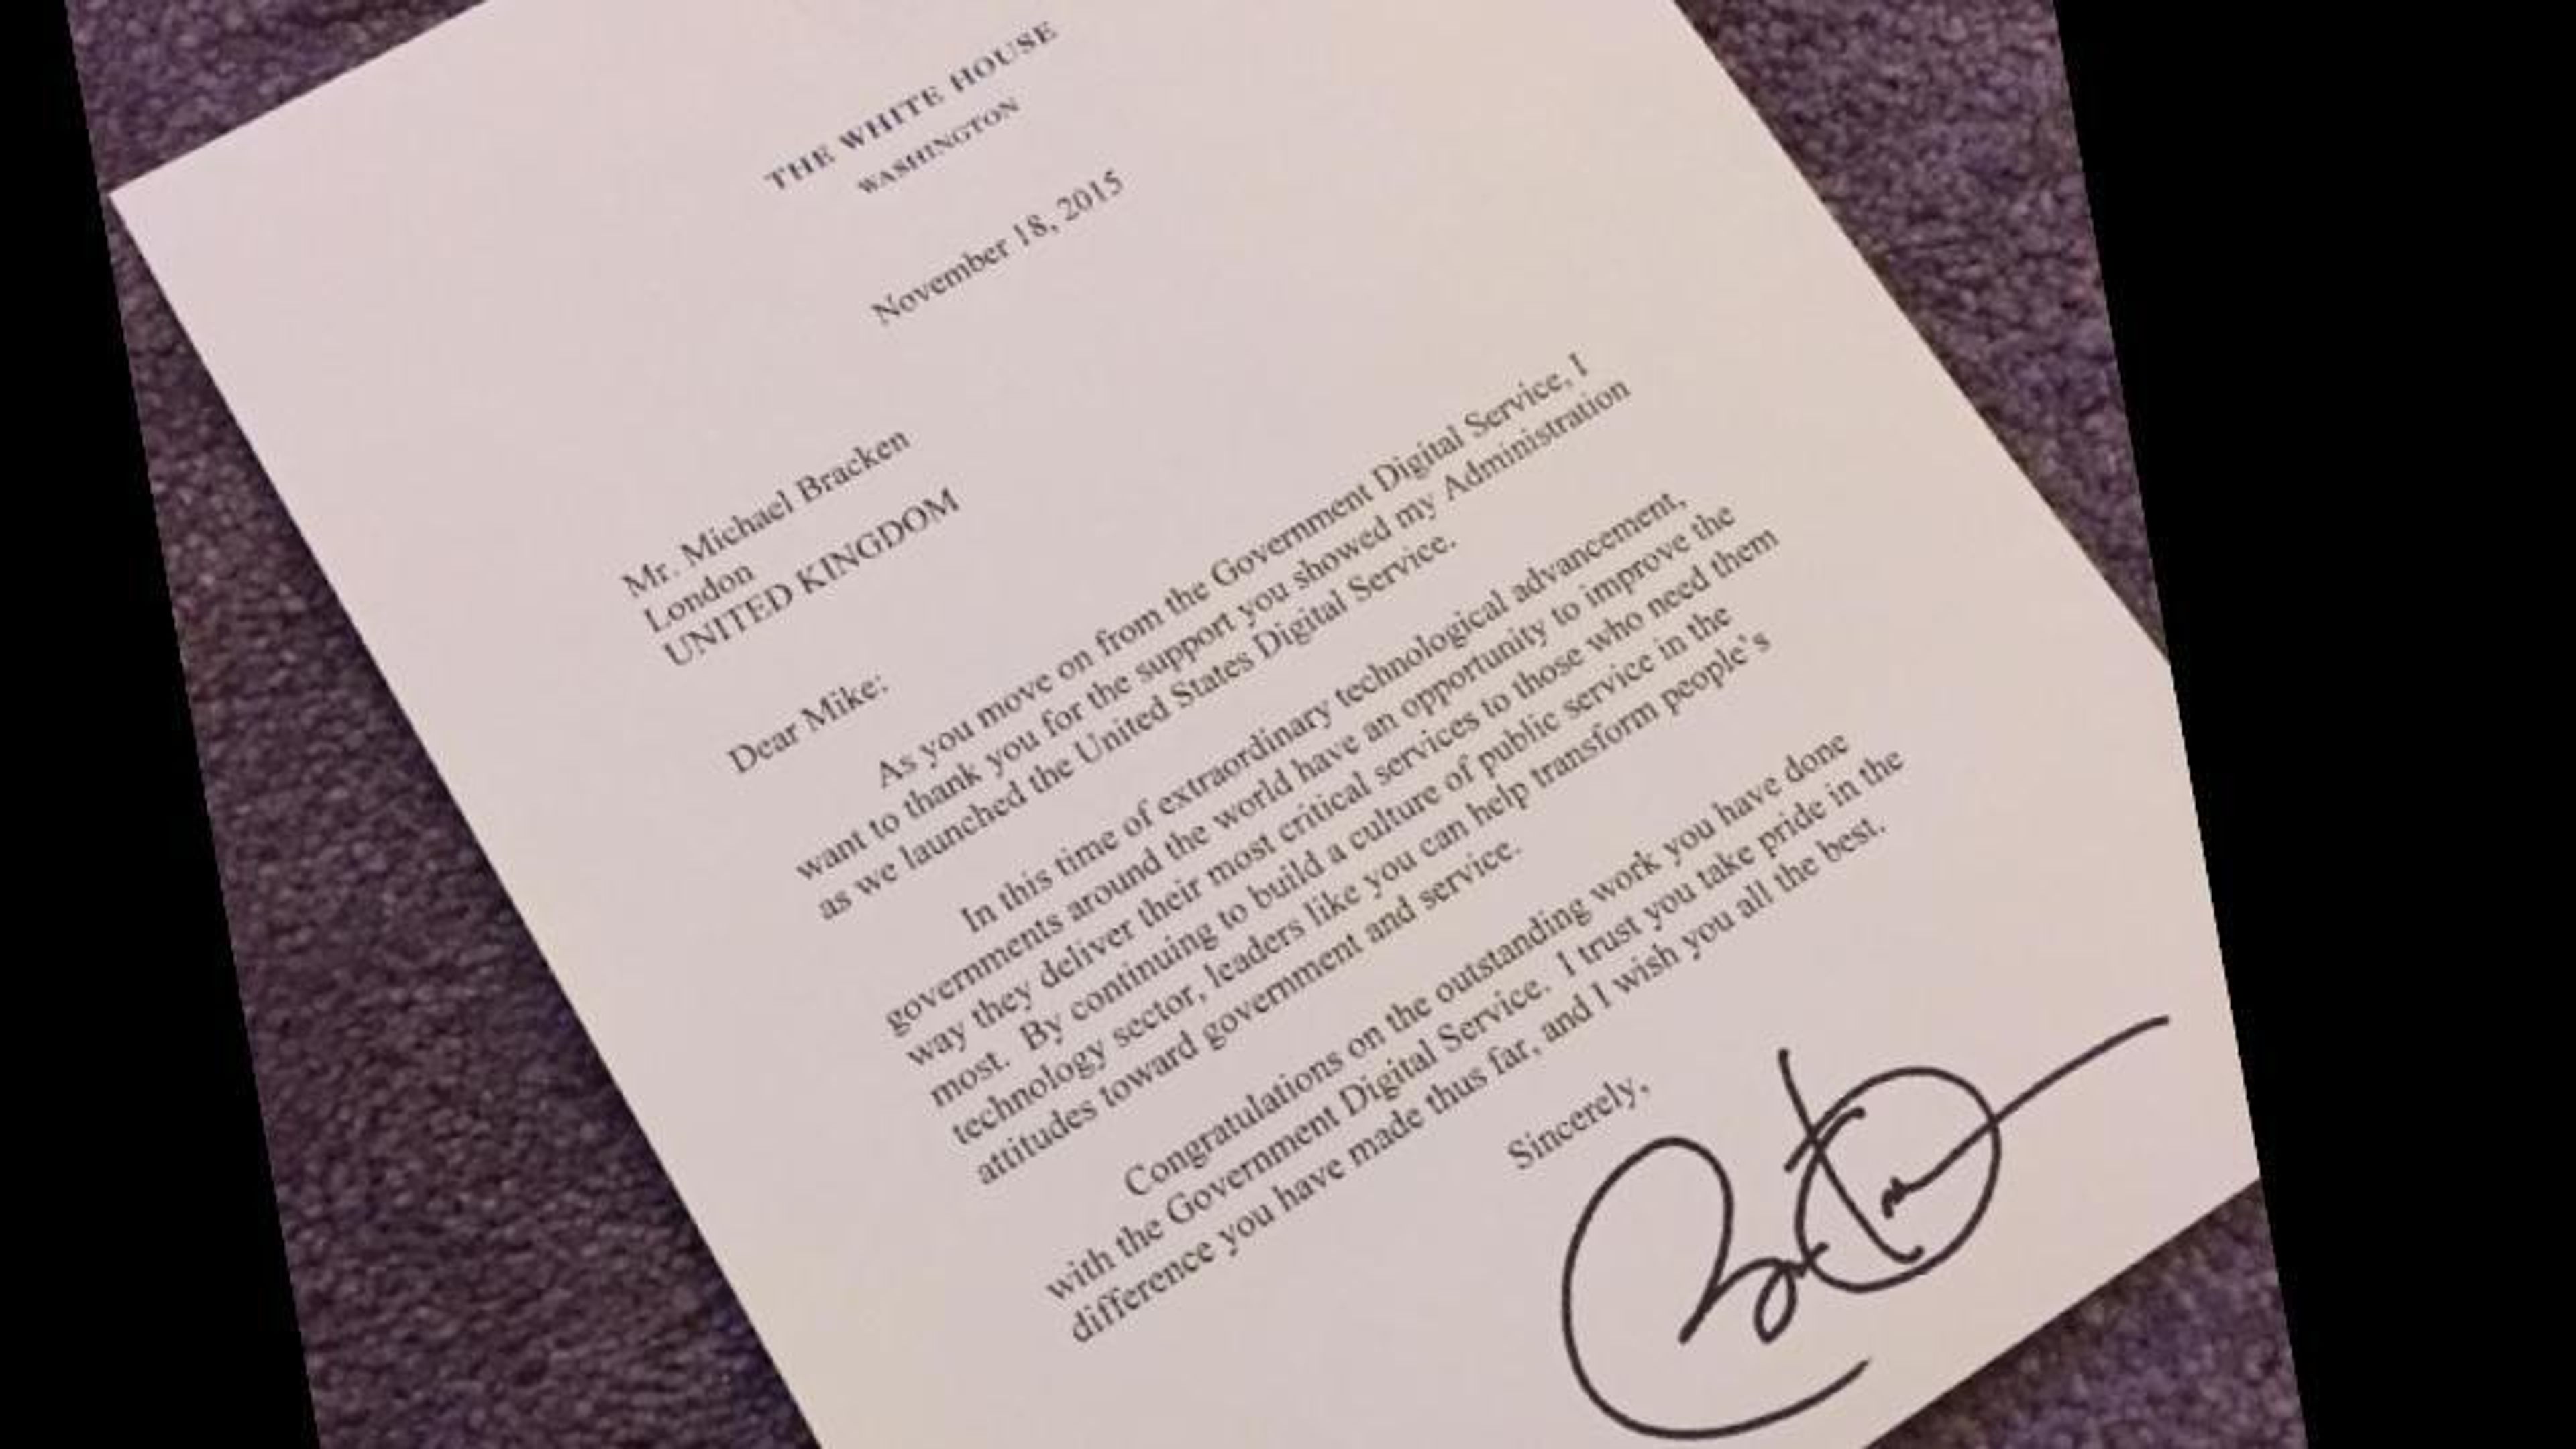 THE WHITE HOUSE
WASHINGTON
November 18, 2015
Mr. Michael Bracken
London
UNITED KINGDOM
Dear Mike:
As you move on from the Government Digital Service, I
want to thank you for the support you showed my Administration
as we launched the United States Digital Service.
In this time of extraordinary technological advancement,
governments around the world have an opportunity to improve the
way they deliver their most critical services to those who need them
most. By continuing to build a culture of public service in the
technology sector, leaders like you can help transform people's
attitudes toward government and service.
Congratulations on the outstanding work you have done
with the Government Digital Service. I trust you take pride in the
difference you have made thus far, and I wish you all the best.
Sincerely,